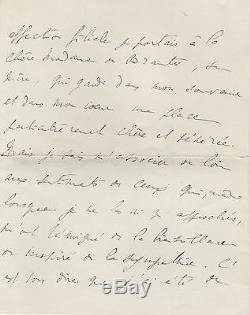 affection filiale je portais à la
chère Madame de Brantes, sa
mère, qui garde dans mon souvenir
et dans mon cœur une place
particulièrement chère et vénérée.
Mais je sais m'associer de loin
aux intérêts de ceux qui, même
lorsque je ne les ai approchés,
m'ont témoigné de la bienveillance
ou inspiré de la sympathie. C'
est vous dire que j'ai été de